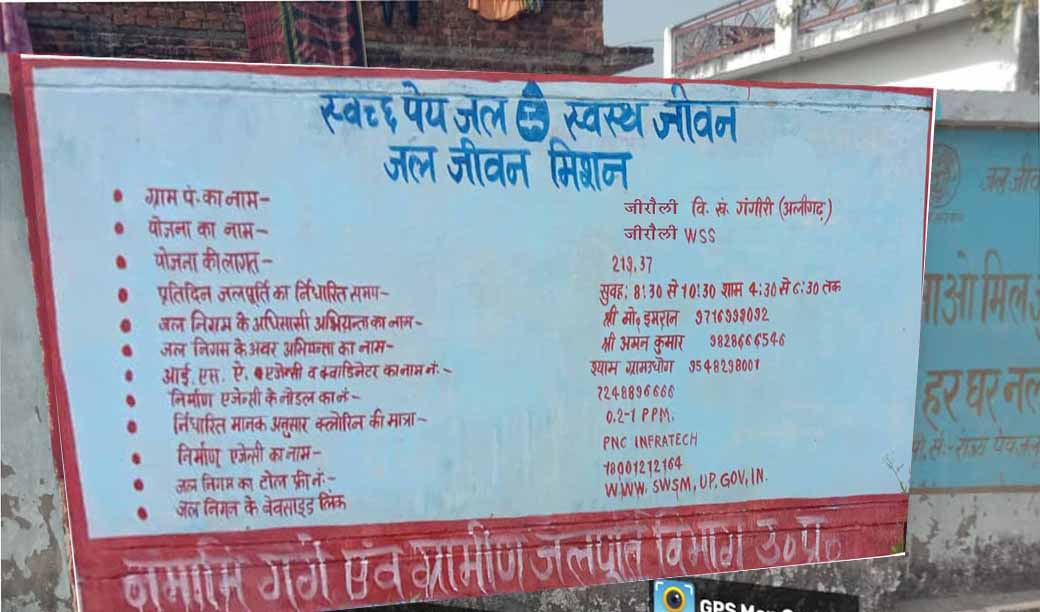 स्वच्छ पेय जल स्वस्थ जीवन
जल जीवन मिशन
• ग्राम पं. का नाम- जीरौली वि. खं. गंगीरी (अलीगढ़)
• योजना का नाम- जीरौली WSS
• योजना की लागत- 219.37
• प्रतिदिन जलपूर्ति का र्निधारित समय- सुवह: 8:30 से 10:30 शाम 4:30 से 6:30 तक
• जल निगम के अधिसासी अभियन्ता का नाम- श्री मो. इमरान 9716999092
• जल निगम के अवर अभियन्ता का नाम- श्री अमन कुमार 9828666546
• आई. एस. ए. एजेन्सी व क्वाडिनेटर का नाम नं.- श्याम ग्रामउधोग 9548298001
• निर्माण एजेन्सी के नोडल का नं- 7248896666
• र्निधारित मानक अनुसार क्लोरिन की मात्रा- 0.2-1 PPM.
• निर्माण एजेन्सी का नाम- PNC INFRATECH
• जल निगम का टोल फ्री नं:- 18001212164
• जल निगम के वेवसाइड लिंक WWW. SWSM, UP, GOV, IN.
नमामि गंगे एवं ग्रामीण जलपूर्ति विभाग उ०प्र०
जल जीव
आओ मिल
हर घर नल
GPS Map